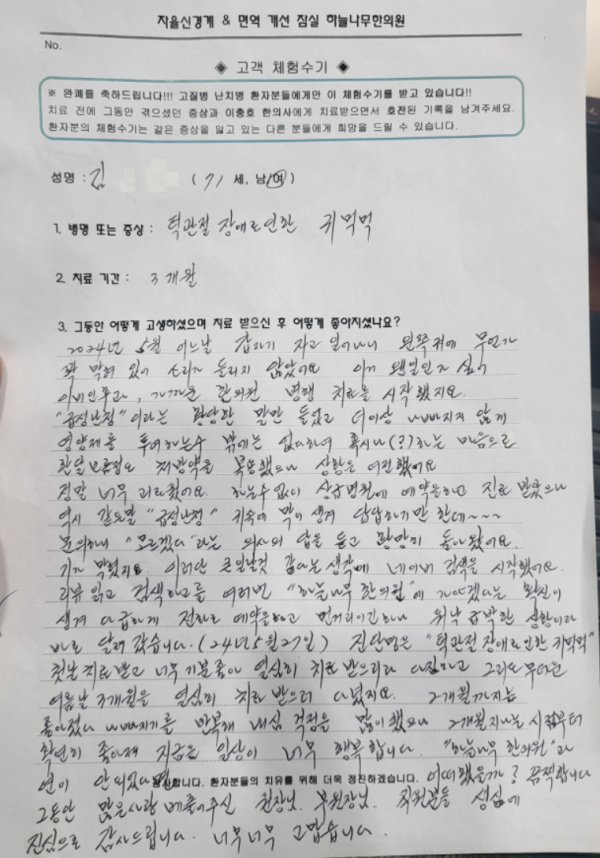 자율신경계 & 면역 개선 잠실 하늘나무한의원
No.
◈ 고객 체험수기 ◈
※ 완쾌를 축하드립니다!!! 고질병 난치병 환자분들에게만 이 체험수기를 받고 있습니다!!
치료 전에 그동안 겪으셨던 증상과 이충호 한의사에게 치료받으면서 호전된 기록을 남겨주세요.
환자분의 체험수기는 같은 증상을 앓고 있는 다른 분들에게 희망을 드릴 수 있습니다.
성명 : 김 ( 71 세, 남/여)
1. 병명 또는 증상 : 턱관절 장애로인한 귀먹먹
2. 치료 기간 : 3개월
3. 그동안 어떻게 고생하셨으며 치료 받으신 후 어떻게 좋아지셨나요?
2024년 5월 어느날 갑자기 자고 일어나니 왼쪽귀에 무언가
꽉 막혀 있어 소리가 들리지 않았어요 이게 웬일인가 싶어
이비인후과, 가까운 한의원 병행 치료를 시작했지요.
"급성난청"이라는 황당한 말만 들었고 더이상 나빠지지 않게
영양제를 투여하는수 밖에는 없다하여 혹시나(?)하는 마음으로
한달 보름정도 처방약을 복용했으나 상황은 여전했어요
정말 너무 괴로웠어요. 하는수없이 상급병원에 예약을하고 진료 받았으나
역시 같은말 "급성난청" 귀속에 막이 생겨 답답하기만 한데~~~~
문의하니 "모르겠다"라는 의사의 답을 듣고 돌아왔어요.
기가 막혔지요. 이러단 큰일날것 같다는생각에 네이버 검색을 시작했어요.
리뷰 읽고 검색하고를 여러번 "하늘나무 한의원"에 가야겠다는 확신이
생겨 다급하게 전화로 예약을하고 먼거리이긴하나 워낙 급박한 상황이라
바로 달려 갔습니다.(24년5월27일) 진단명은 "턱관절장애로인한 귀먹먹"
첫날 치료받고 너무 기분좋아 열심히 치료 받으리라 다짐하고 그리도 무더운
여름날 3개월을 열심히 치료 받으러 다녔지요. 2개월까지는
좋아졌다 나빠지기를 반복해 내심 걱정을 많이 했으나 2개월 지나는 시점부터
확연히 좋아져 지금은 일상이 너무 행복합니다. "하늘나무 한의원"과
연이 안되었다면 감사합니다. 환자분들의 치유를 위해 더욱 정진하겠습니다. 어찌했을까? 끔찍합니다
그동안 많은사랑 베풀어주신 원장님, 부원장님, 직원분들 성심에
진심으로 감사드립니다. 너무너무 고맙습니다.